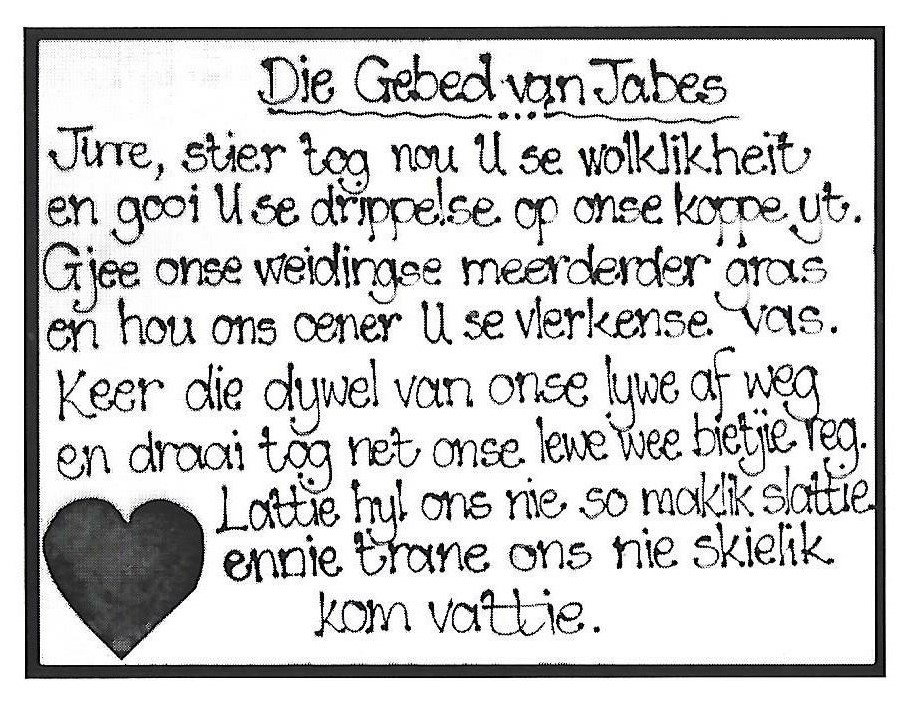 Die Gebed van Jabes
Jirre, stier tog nou U se wolklikheit
en gooi U se drippelse op onse koppe yt.
Gjee onse weidingse meerderder gras
en hou ons oener U se vlerkense vas.
Keer die dywel van onse lywe af weg
en draai tog net onse lewe wee bietjie reg.
Lattie hyl ons nie so maklik slattie
ennie trane ons nie skielik
kom vattie.